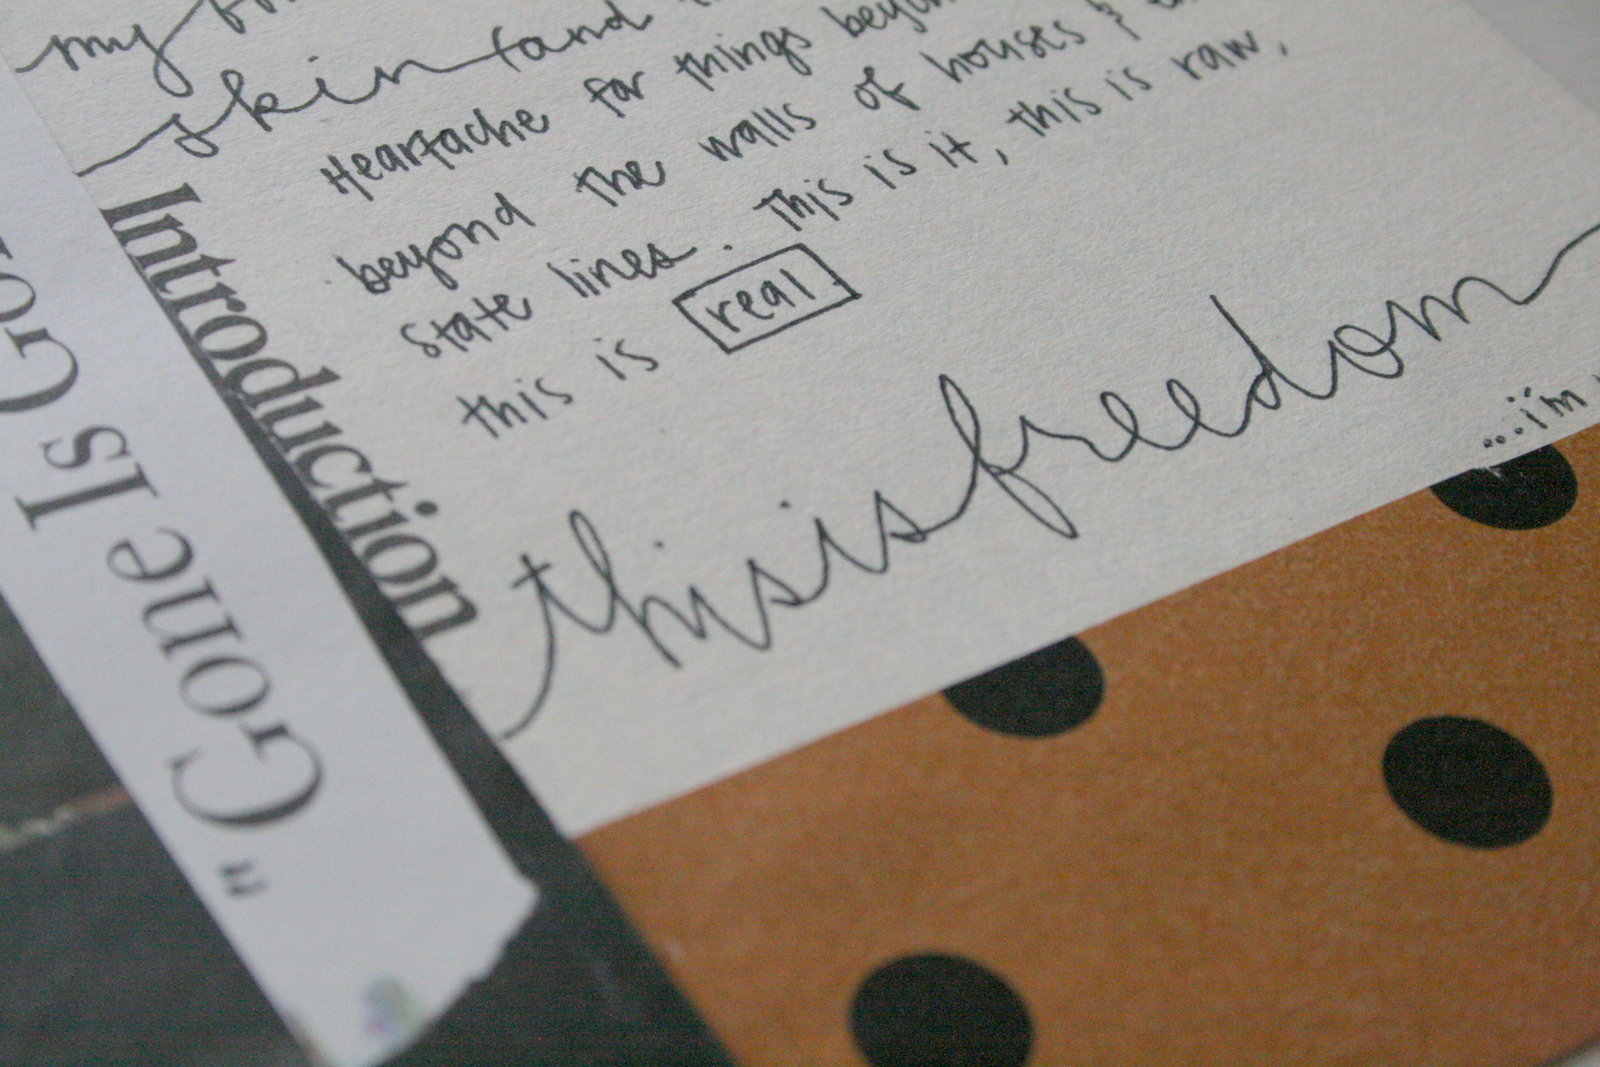 my
skin and
Heartache for things
beyond the walls of houses &
state lines. This is it, this is raw,
this is real.
this is freedom
...i'm
Introduction
"Gone Is